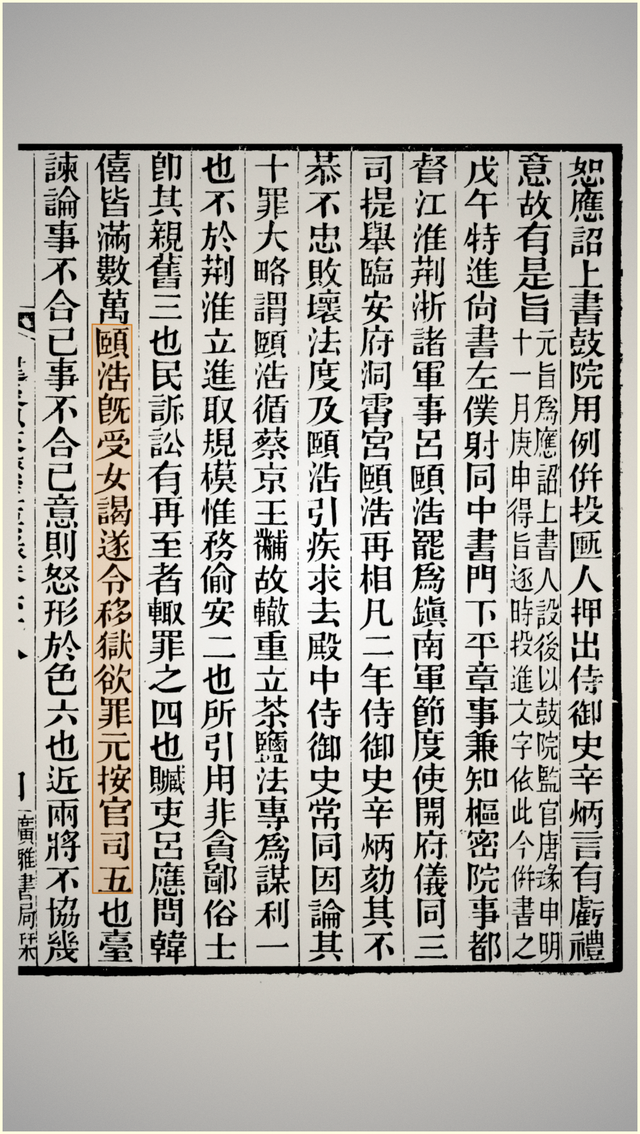 恕應詔上書鼓院用例倂投匭人押出侍御史辛炳言有虧禮
意故有是旨元旨爲應詔上書人設後以鼓院監官唐瑑申明
十一月庚申得旨逐時投進文字依此今倂書之
戊午特進尙書左僕射同中書門下平章事兼知樞密院事都
督江淮荆浙諸軍事呂頤浩罷爲鎭南軍節度使開府儀同三
司提舉臨安府洞霄宮頤浩再相凡二年侍御史辛炳劾其不
恭不忠敗壞法度及頤浩引疾求去殿中侍御史常同因論其
十罪大略謂頤浩循蔡京王黼故轍重立茶鹽法專爲謀利一
也不於荆淮立進取規模惟務偷安二也所引用非貪鄙俗士
卽其親舊三也民訴訟有再至者輙罪之四也贓吏呂應問韓
僖皆滿數萬頤浩旣受女謁遂令移獄欲罪元按官司五也臺
諫論事不合己事不合己意則怒形於色六也近兩將不協幾
廣雅書局栞